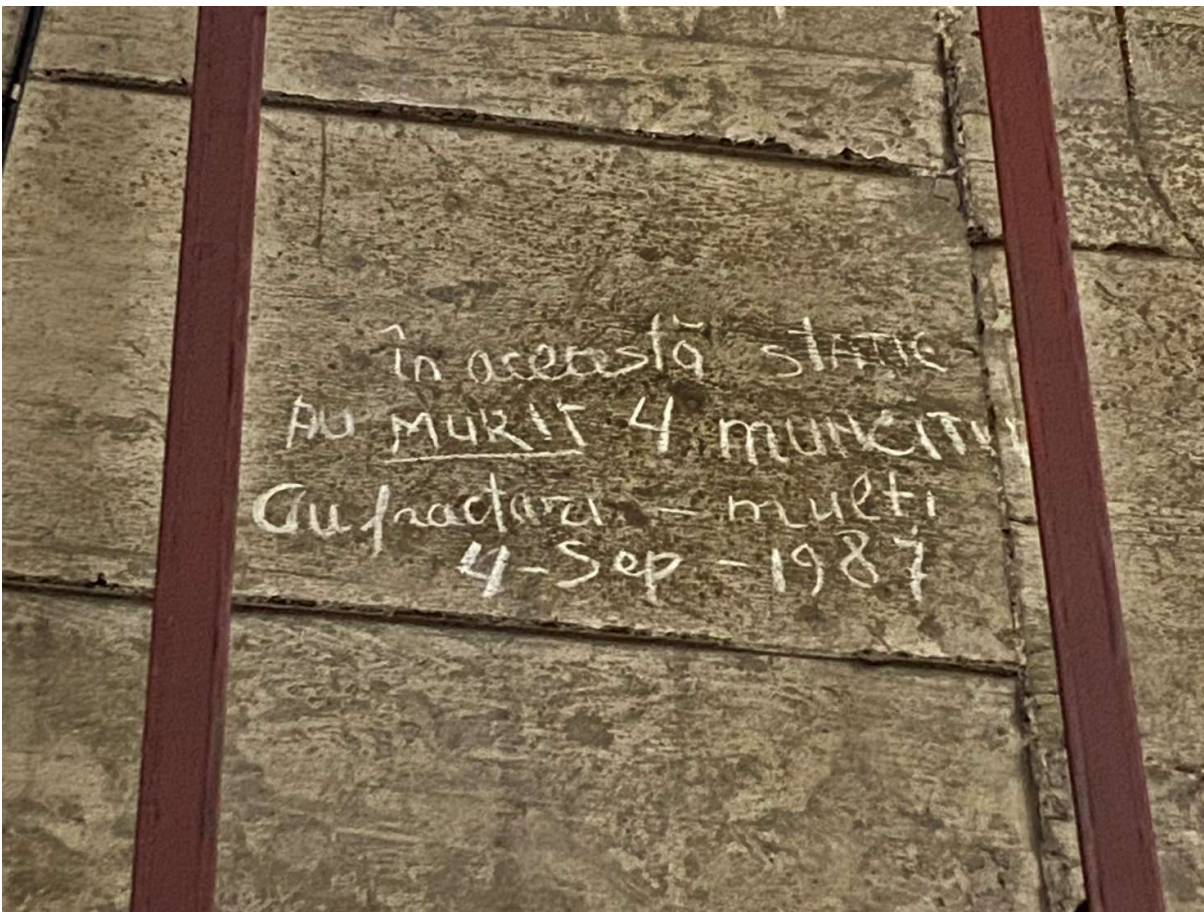 în această STAȚIE
AU MURIT 4 MUNCITO
Cu fracturi - mulți
4-Sep-1987